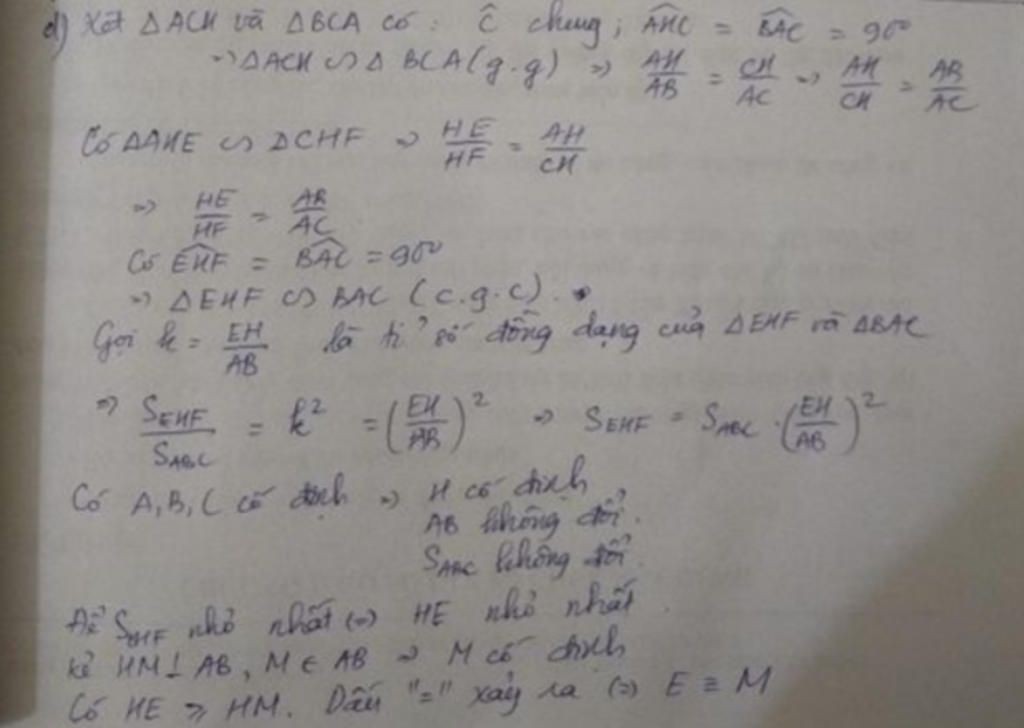 d) Xét △ACH và △BCA có: Ĉ chung; ÂHC = B̂AC = 90°
⇒ △ACH ∽ △BCA (g.g) ⇒ AH/AB = CH/AC ⇒ AH/CH = AB/AC
Có △AHE ∽ △CHF ⇒ HE/HF = AH/CH
⇒ HE/HF = AB/AC
Có ÊHF = B̂AC = 90°
⇒ △EHF ∽ BAC (c.g.c).
Gọi k = EH/AB là tỉ số đồng dạng của △EHF và △BAC
⇒ S_EHF/S_ABC = k² = (EH/AB)² ⇒ S_EHF = S_ABC . (EH/AB)²
Có A, B, C cố định ⇒ H cố định
AB không đổi.
S_ABC không đổi.
Để S_EHF nhỏ nhất ⇔ HE nhỏ nhất.
kẻ HM ⊥ AB, M ∈ AB ⇒ M cố định
Có HE ≥ HM. Dấu "=" xảy ra ⇔ E ≡ M